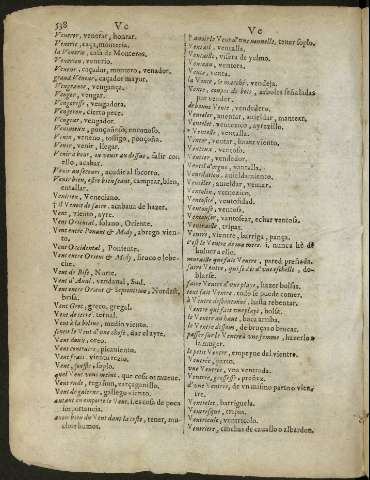 538 Ve
Venerer, venerar, honrar.
Venerie, caça, monteria.
la Venerie, casa de Monteros.
Venerien, venerio.
Veneur, caçador, montero, venador.
grand Veneur, caçador mayor.
Vengeance, vengança.
Venger, vengar.
Vengeresse, vengadora.
Vengeron, cierto pece.
Vengeur, vengador.
Venimeux, ponçoñoso, enconoso.
Venin, veneno, tossigo, ponçoña.
Venir, venir, llegar.
Venir à bout, ou venir au dessus, salir con
ello, acabar.
Venir au secours, acudir al socorro.
Venir bien, estre bien seant, campear, bien,
entallar.
Venitien, Veneciano.
il Vient de faire, acabava de hazer.
Vent, viento, ayre.
Vent Oriental, solano, Oriente.
Vent entre Ponant & Midy, abrego vien-
to.
Vent Occidental, Poniente.
Vent entre Orient & Midy, Siroco lebe-
che.
Vent de Bise, Norte.
Vent d'Aval, vendaval, Sud.
Vent entre Orient & Septentrion, Nordest,
brisa.
Vent Grec, greco, gregal.
Vent de terre, terral.
Vent à la bolyne, medio viento.
sentir le Vent d'une chose, dar el ayre.
Vent doux, oreo.
Vent contraire,
Vent frais, viento rezio.
Vent, souffle, soplo.
quel Vent vous meine, que cosa os mueve.
Vent rude, regañon,
Vent de galerne, gallego viento.
autant en emporte le Vent, i. es cosa de poca
importancia.
avoir bien du Vent dans la teste, tener, mu-
chos humos.
Ve
avoir le Vent d'une nouvelle, tener soplo.
Ventail, ventalla.
Ventaille, visera de yelmo.
Venteau, ventera.
Vente, venta.
la Vente, le marché, vendeja.
Vente, coupes de bois, arboles señaladas
por vender.
de bonne Vente, vendidero.
Venteler, aventar, auieldar, mantear.
Ventelet, ventezico, ayrezillo.
Ventelle, ventalla.
Venter, ventar, hazer viento.
Venteux, ventoso.
Ventier, vendedor.
Ventil d'orgue, ventalla.
Ventilation, auieldamiento.
Ventiler, auieldar, ventar.
Ventolin, ventezico.
Ventosité, ventosidad.
Ventouse, ventosa.
Ventouser, ventosear, echar ventosa.
Ventraille, tripas.
Ventre, vientre, barriga, pança.
c'est le Ventre de ma mere. i. nunca hè de
bolver a ello.
muraille qui fait Ventre, pared preñada.
faire Ventre, qui se dit d'une eschelle, do-
blarse.
faire Ventre d'une playe, hazer bolsas.
tout fait Ventre, todo se puede comer.
à Ventre deboutonné, hasta rebentar.
Ventre qui fait une playe, bolsa.
le Ventre au haut, boca arriba.
le Ventre dessous, de bruças o brucar.
passer sur le Ventre à une femme, hazerlo à
la muger.
le petit Ventre, empeyne del vientre.
Ventrée, parto.
une Ventrée, una ventrada.
Ventrée, grossesse, preñez.
d'une Ventrée, de un mismo parto o vien-
tre.
Ventrelet, barriguela.
Ventresque, tripas.
Ventricule, ventriculo.
Ventriere, cinchas de cavallo o albarden.